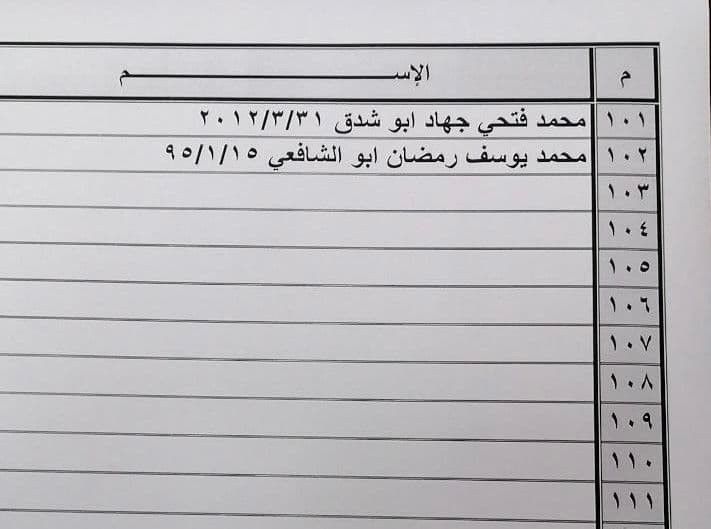 م الإســـــــــــــــــــــــــــــــــم
١٠١ محمد فتحي جهاد ابو شدق ٢٠١٢/٣/٣١
١٠٢ محمد يوسف رمضان ابو الشافعي ٩٥/١/١٥
١٠٣
١٠٤
١٠٥
١٠٦
١٠٧
١٠٨
١٠٩
١١٠
١١١